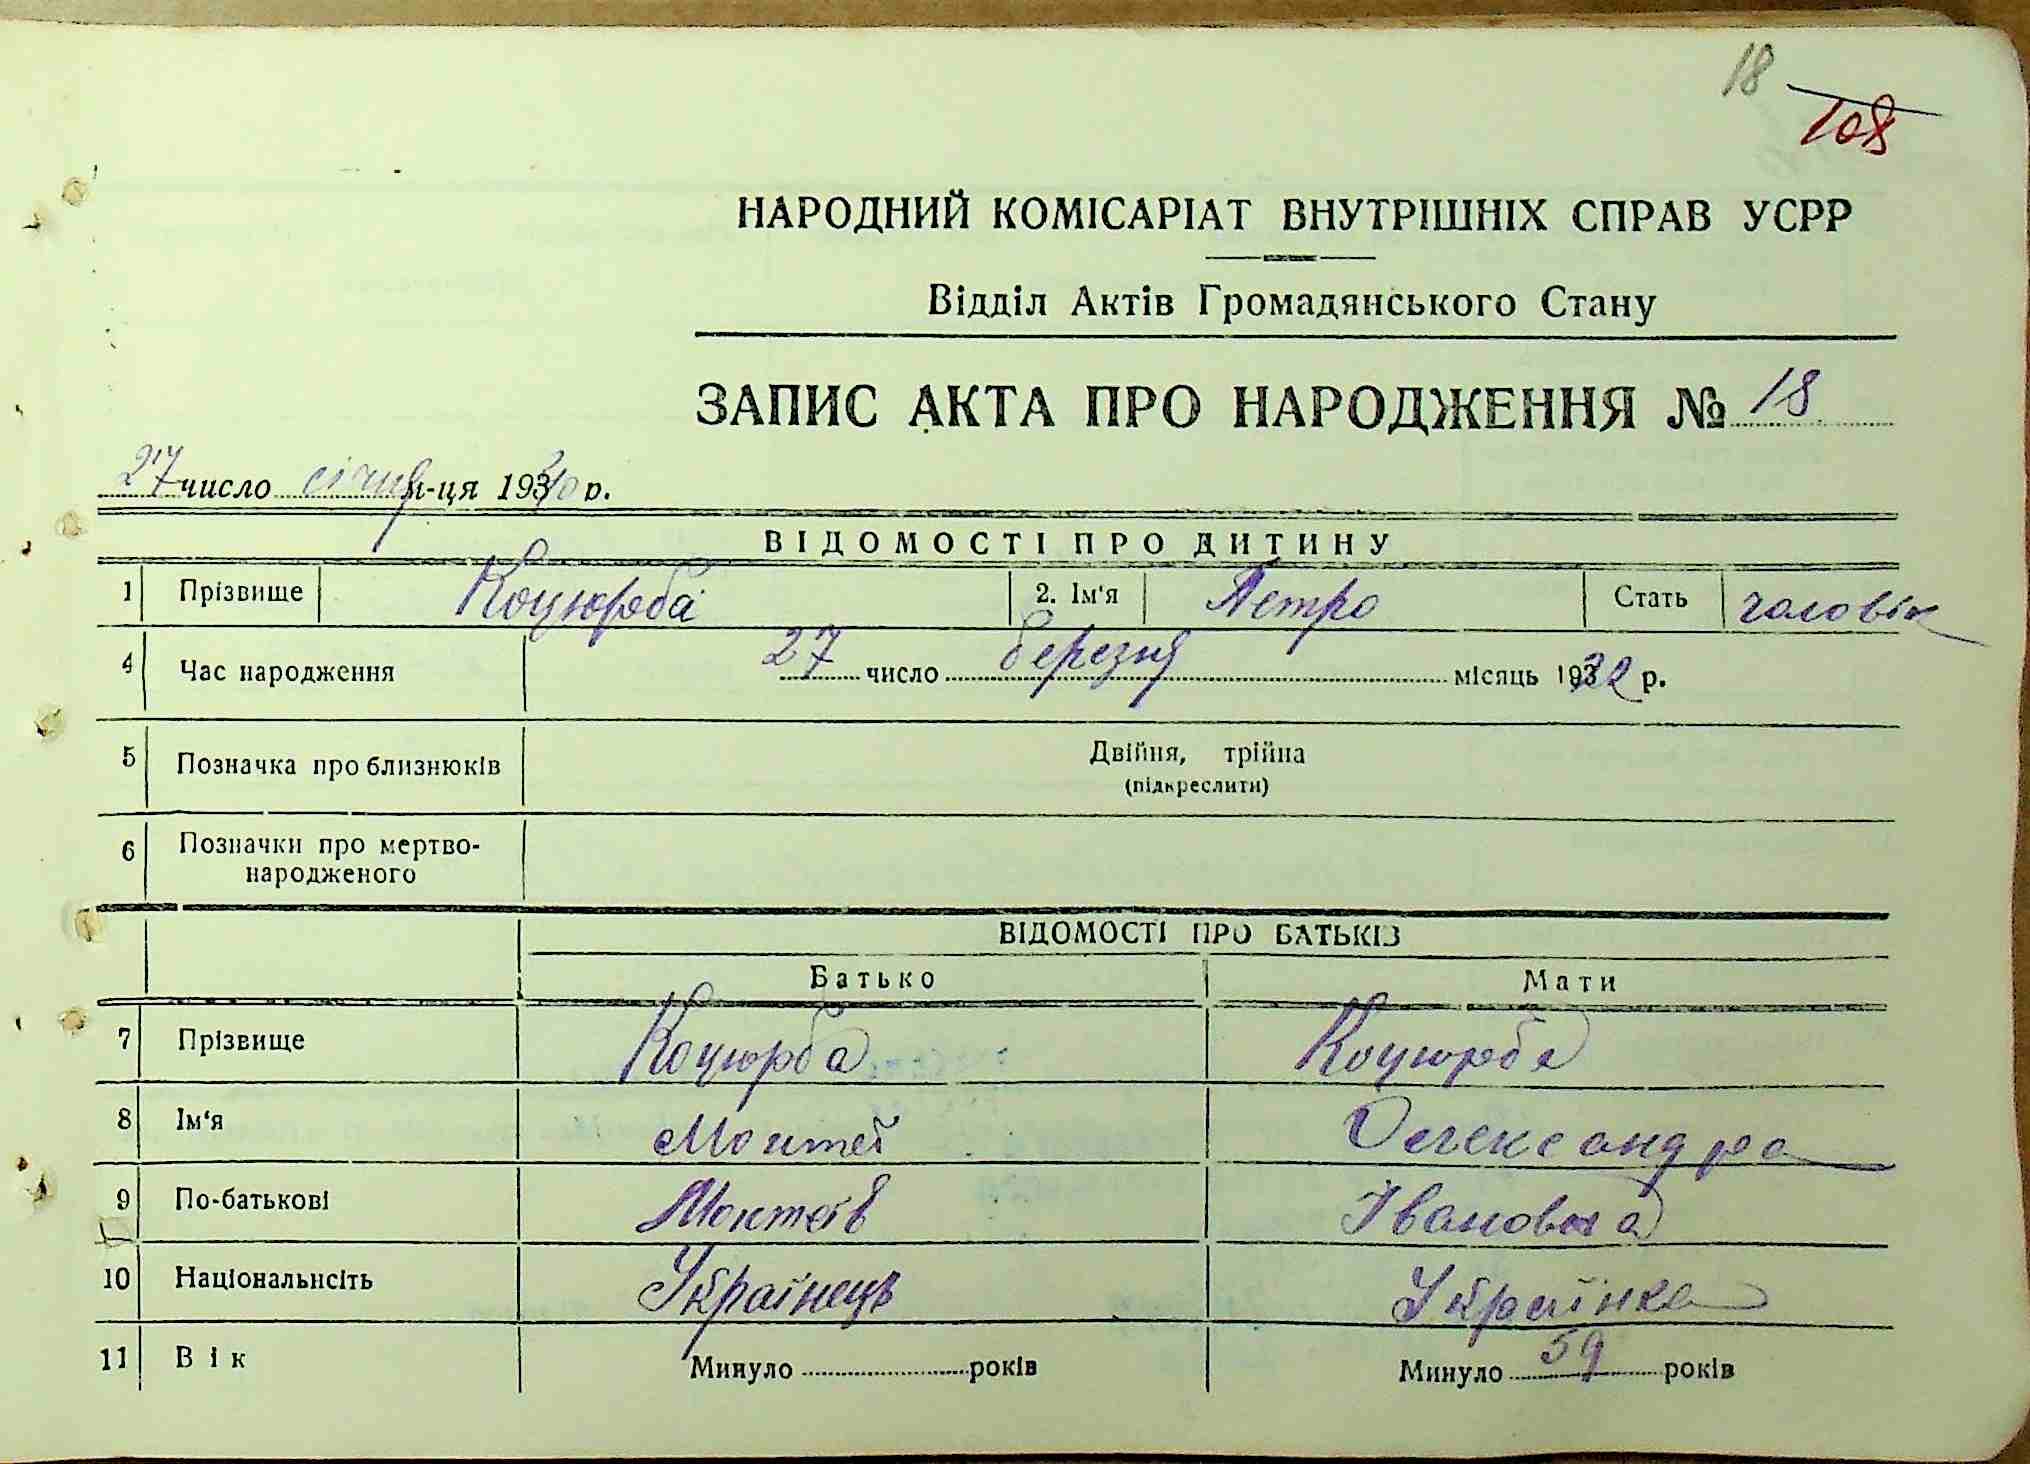 18
108
НАРОДНИЙ КОМІСАРІАТ ВНУТРІШНІХ СПРАВ УСРР
Відділ Актів Громадянського Стану
ЗАПИС АКТА ПРО НАРОДЖЕННЯ № 18
27 число січня м-ця 193 р.
ВІДОМОСТІ ПРО ДИТИНУ
1 Прізвище Коцюрба 2. Ім'я Петро Стать чоловік
4 Час народження 27 число березня місяць 193 р.
5 Позначка про близнюків Двійня, трійна
(підкреслити)
6 Позначки про мертво-
народженого
ВІДОМОСТІ ПРО БАТЬКІВ
Батько Мати
7 Прізвище Коцюрба Коцюрба
8 Ім'я Мойтей Олександра
9 По-батькові Івановна
10 Національнсіть Українець Українка
11 Вік Минуло років Минуло 59 років